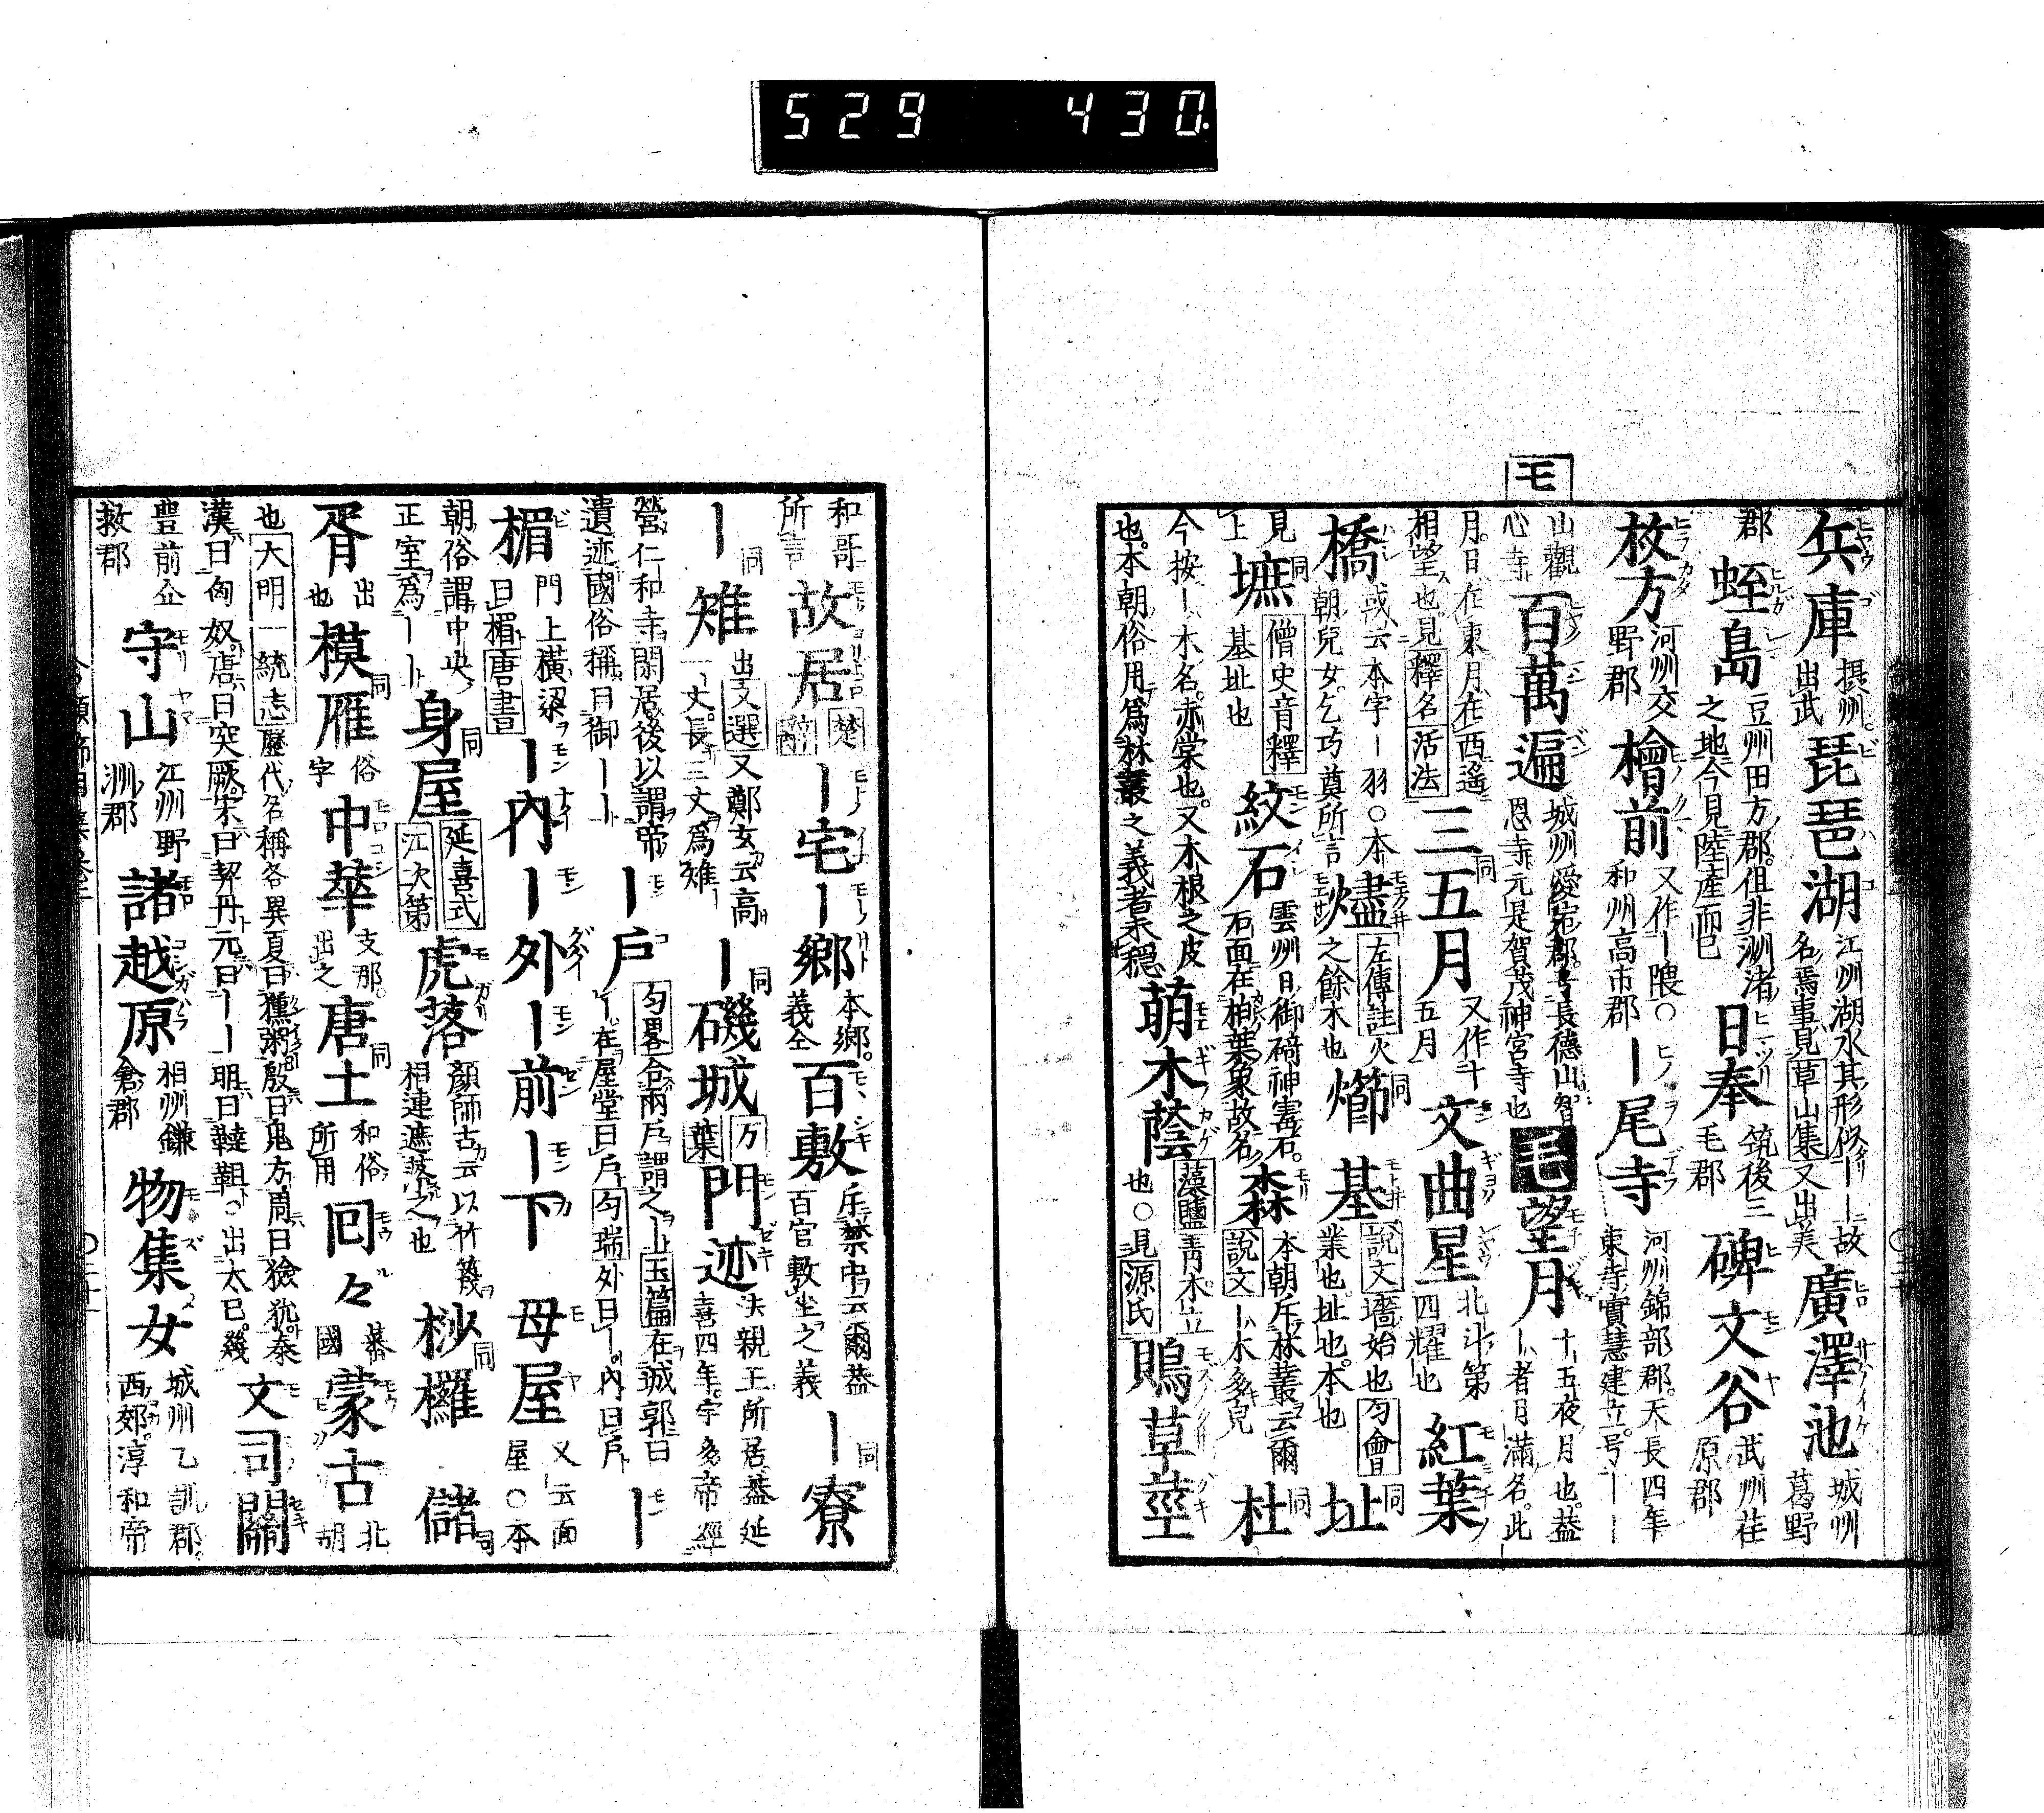 529 430.
モ
兵庫 摂州。出武 琵琶湖 江州湖水其形似ーー故名焉事見草山集又出美 廣澤池 城州葛野
郡 蛭島 豆州田方郡。但非洲渚之地今見陸産而已 日奉 筑後三毛郡 碑文谷 武州荏原郡
枚方 河州交野郡 檜前 又作ー隈○和州高市郡 ー尾寺 河州錦部郡。天長四年東寺實慧建立。号ーー
山觀心寺 百萬遍 城州愛宕郡。号長德山智恩寺元是賀茂神宮寺也 毛 望月 十五夜月也。蓋ー者月滿名。此
月。日在東月在西遙相望也。見釋名活法 三五月 同 又作十五月 文曲星 北斗第四耀也 紅葉
橋 或云本字ー羽○本朝兒女乞巧奠所言 燼 左傳註火之餘木也 㸅 同 基 說文墻始也業也址也。本也 匀會 址 同
見上 墲 同 僧史音釋基址也 紋石 雲州日御碕神寄石。石面在柏葉象故名 森 本朝斥林叢云爾說文ー木多皃 杜 同
今按ー木名。赤棠也。又木根之皮也。本朝俗用爲林叢之義者未穩 萌木蔭 藻鹽青木立也。○見源氏 鵙草莖
和哥所言 故居 楚辭 ー宅 ー鄉 本鄉。義仝 百敷 斥禁中云爾蓋百官敷坐之義 ー寮 同
ー雉 同 出文選又鄭玄云高一丈。長三丈爲雉 ー礒城 同 万葉 門迹 法親王所居。蓋延喜四年。宇多帝經
營仁和寺閑居後以謂帝遺迹國俗稱曰御ーー ー戶 匀畧合兩戶謂之ー玉篇在城郭曰ー。在屋堂曰戶匀瑞外曰ー。內曰戶 ー
楣 門上橫梁曰楣唐書 ー內 ー外 ー前 ー下 母屋 又云面屋○本
朝俗謂中央正室爲ーー 身屋 同 延喜式江次第 虎落 顏師古云以竹篾相連遮莎之也 杪欏 同 儲 同
胥 出也 模雁 同 俗字 中華 支那。出之 唐土 同 和俗所用 回々 蕃國 蒙古 北胡
也大明一統志歷代名稱各異夏曰獯粥。殷曰鬼方周曰獫狁。秦漢曰匈奴。唐曰突厥。宋曰契丹元曰ーー明曰韃靼○出太巳。幾 文司關
豊前企救郡 守山 江州野洲郡 諸越原 相州鎌倉郡 物集女 城州乙訓郡。西郊。淳和帝